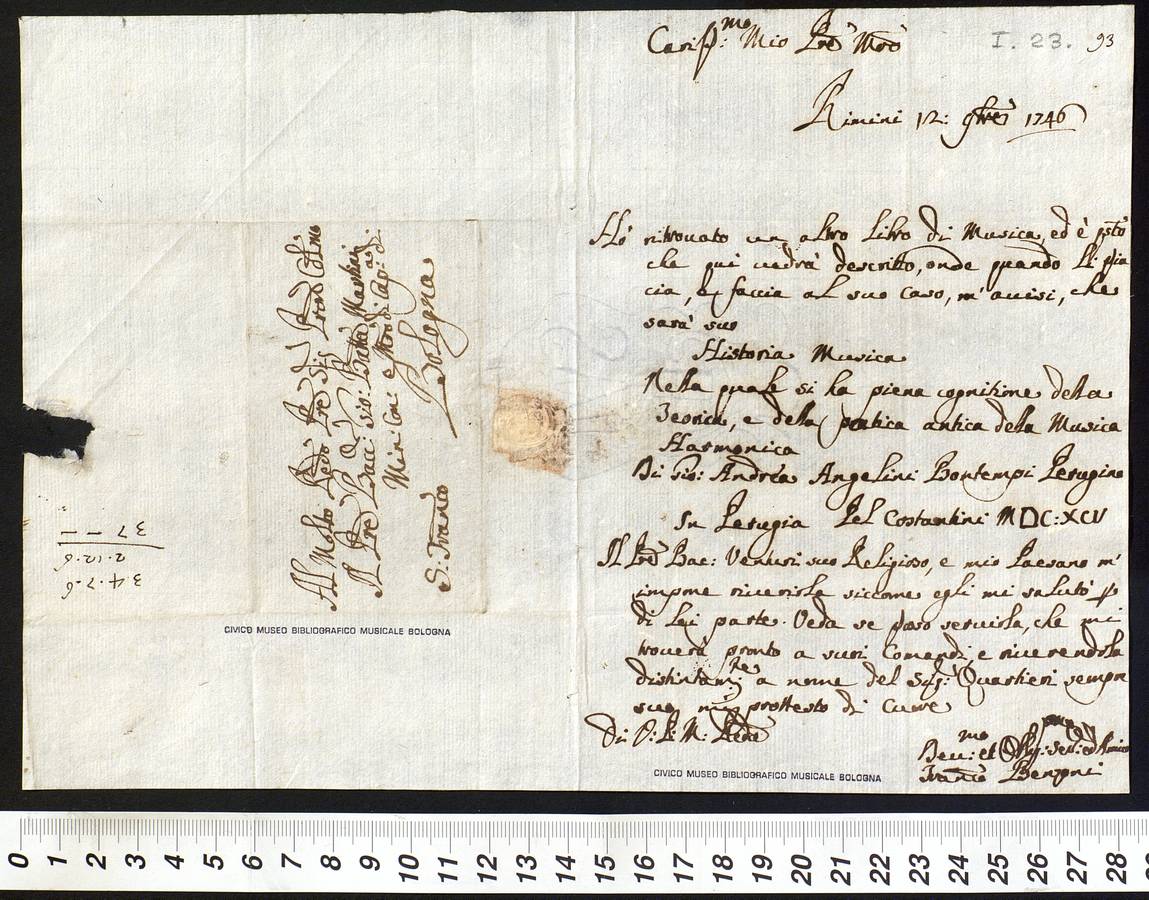 Cariss:mo Mio Pre Mro
I. 23. 93
Rimini 12: 9bre 1746
Hò ritrovato un altro Libro di Musica, ed è psto
che qui vedrà descritto, onde quando Li pia
cia, e faccia al suo caso, m'avisi, che
sarà suo
Historia Musica
Nella quale si ha piena cognitione della
Teorica, e della pratica antica della Musica
Harmonica
Di Gio: Andrea Angelini Bontempi Perugino
In Perugia Pel Costantini MDC:XCV
Il Pre Bac: Venturi suo Religioso, e mio Paesano m'
impone riverirla siccome egli mi salutò p
di Lei parte. Veda se posso servirla, che mi
troverà pronto a suoi Comandi, e riverendola
distintam:te a nome del Sig: Quartieri sempre
suo mi prottesto di Cuore
Di V: P: M: Reda
Devmo: et Obg: ser: ed Amico
Franco Benzoni
Al Molto Rdo Pre Sig Pron Colmo
Il Pre Bacc: Gio: Batta Martini
Min: Con: e Mro di Cap:a di
Bologna
S: Franco
34.7.6
2.12.6
37 - -
CIVICO MUSEO BIBLIOGRAFICO MUSICALE BOLOGNA
CIVICO MUSEO BIBLIOGRAFICO MUSICALE BOLOGNA
0 1 2 3 4 5 6 7 8 9 10 11 12 13 14 15 16 17 18 19 20 21 22 23 24 25 26 27 28